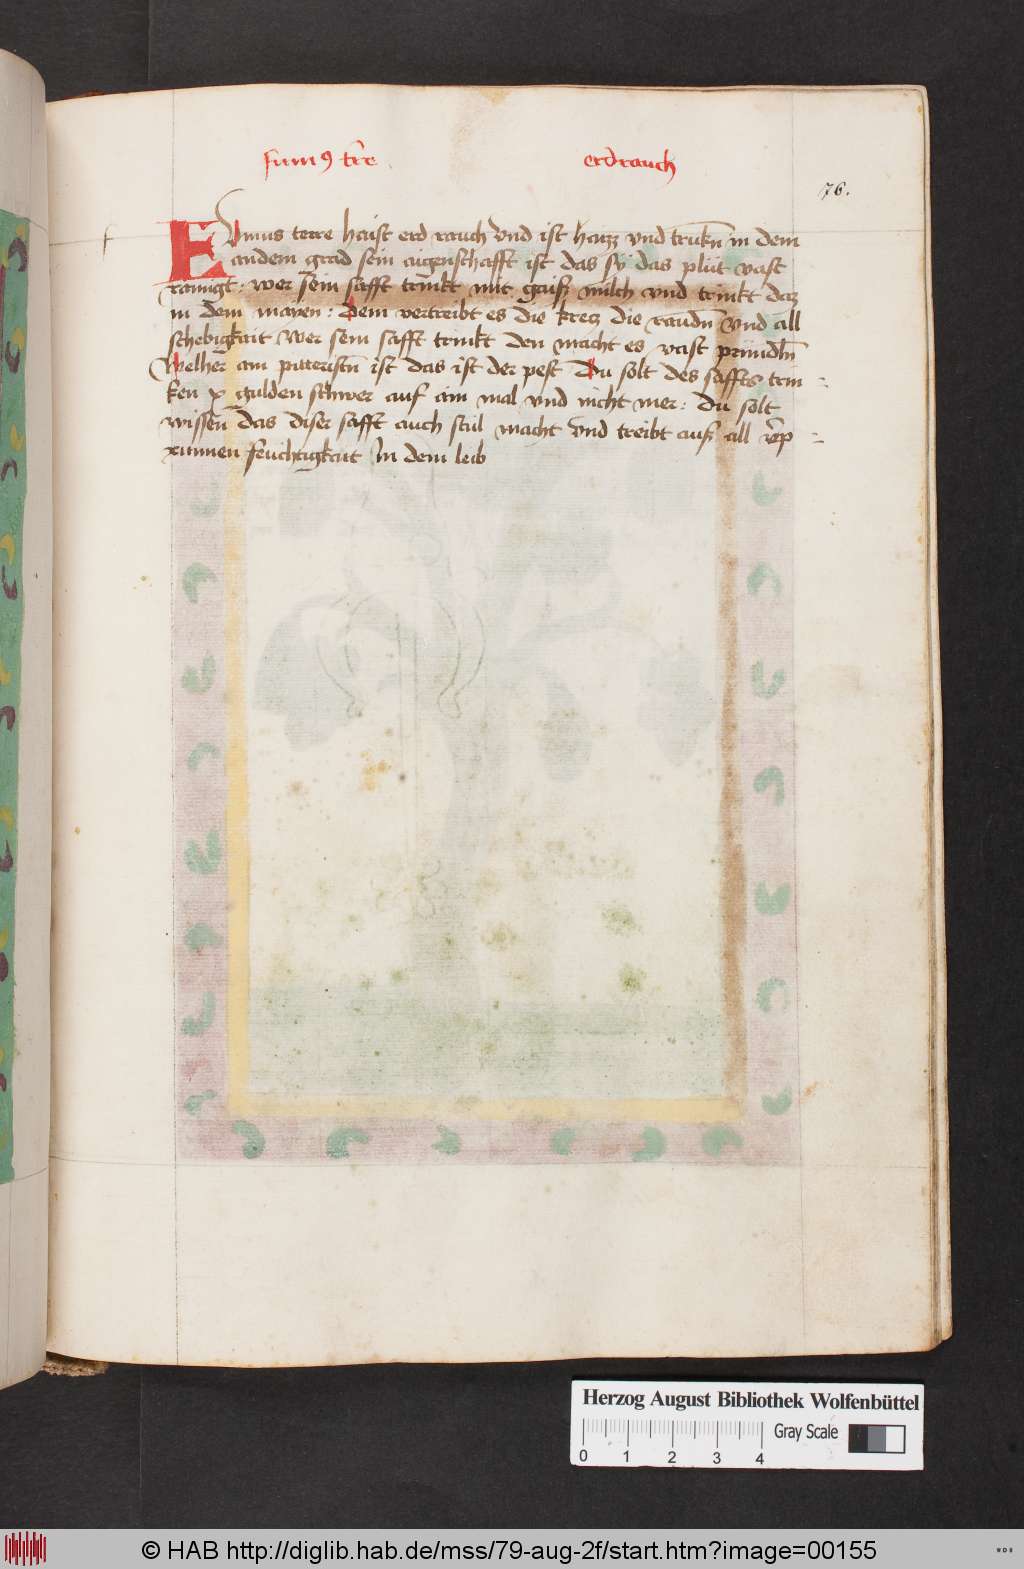 fumꝯ tr̃e erdrauch
76.
f
EVmus terre haist erd rauch vnd ist haizz vnd trukn̄ in dem
andem grad sein aigenschafft ist das sy das plůt vast
rainigt : wer sein safft trinkt mit gaiß milch vnd trinkt daz
in dem mayen : Dem vertreibt es die kretz die raudn̄ vnd all
schebigkait Wer sein safft trinkt den macht es vast prundln̄
Welher ain pittersten ist das ist der pest Du solt des saffts trin
ken x gulden schwer auf ain mal vnd nicht mer : Du solt
wissen das diser safft auch stůl macht vnd treibt auß all
prunnen feüchtigkait in dem leib
Herzog August Bibliothek Wolfenbüttel
0 1 2 3 4 Gray Scale
© HAB http://diglib.hab.de/mss/79-aug-2f/start.htm?image=00155